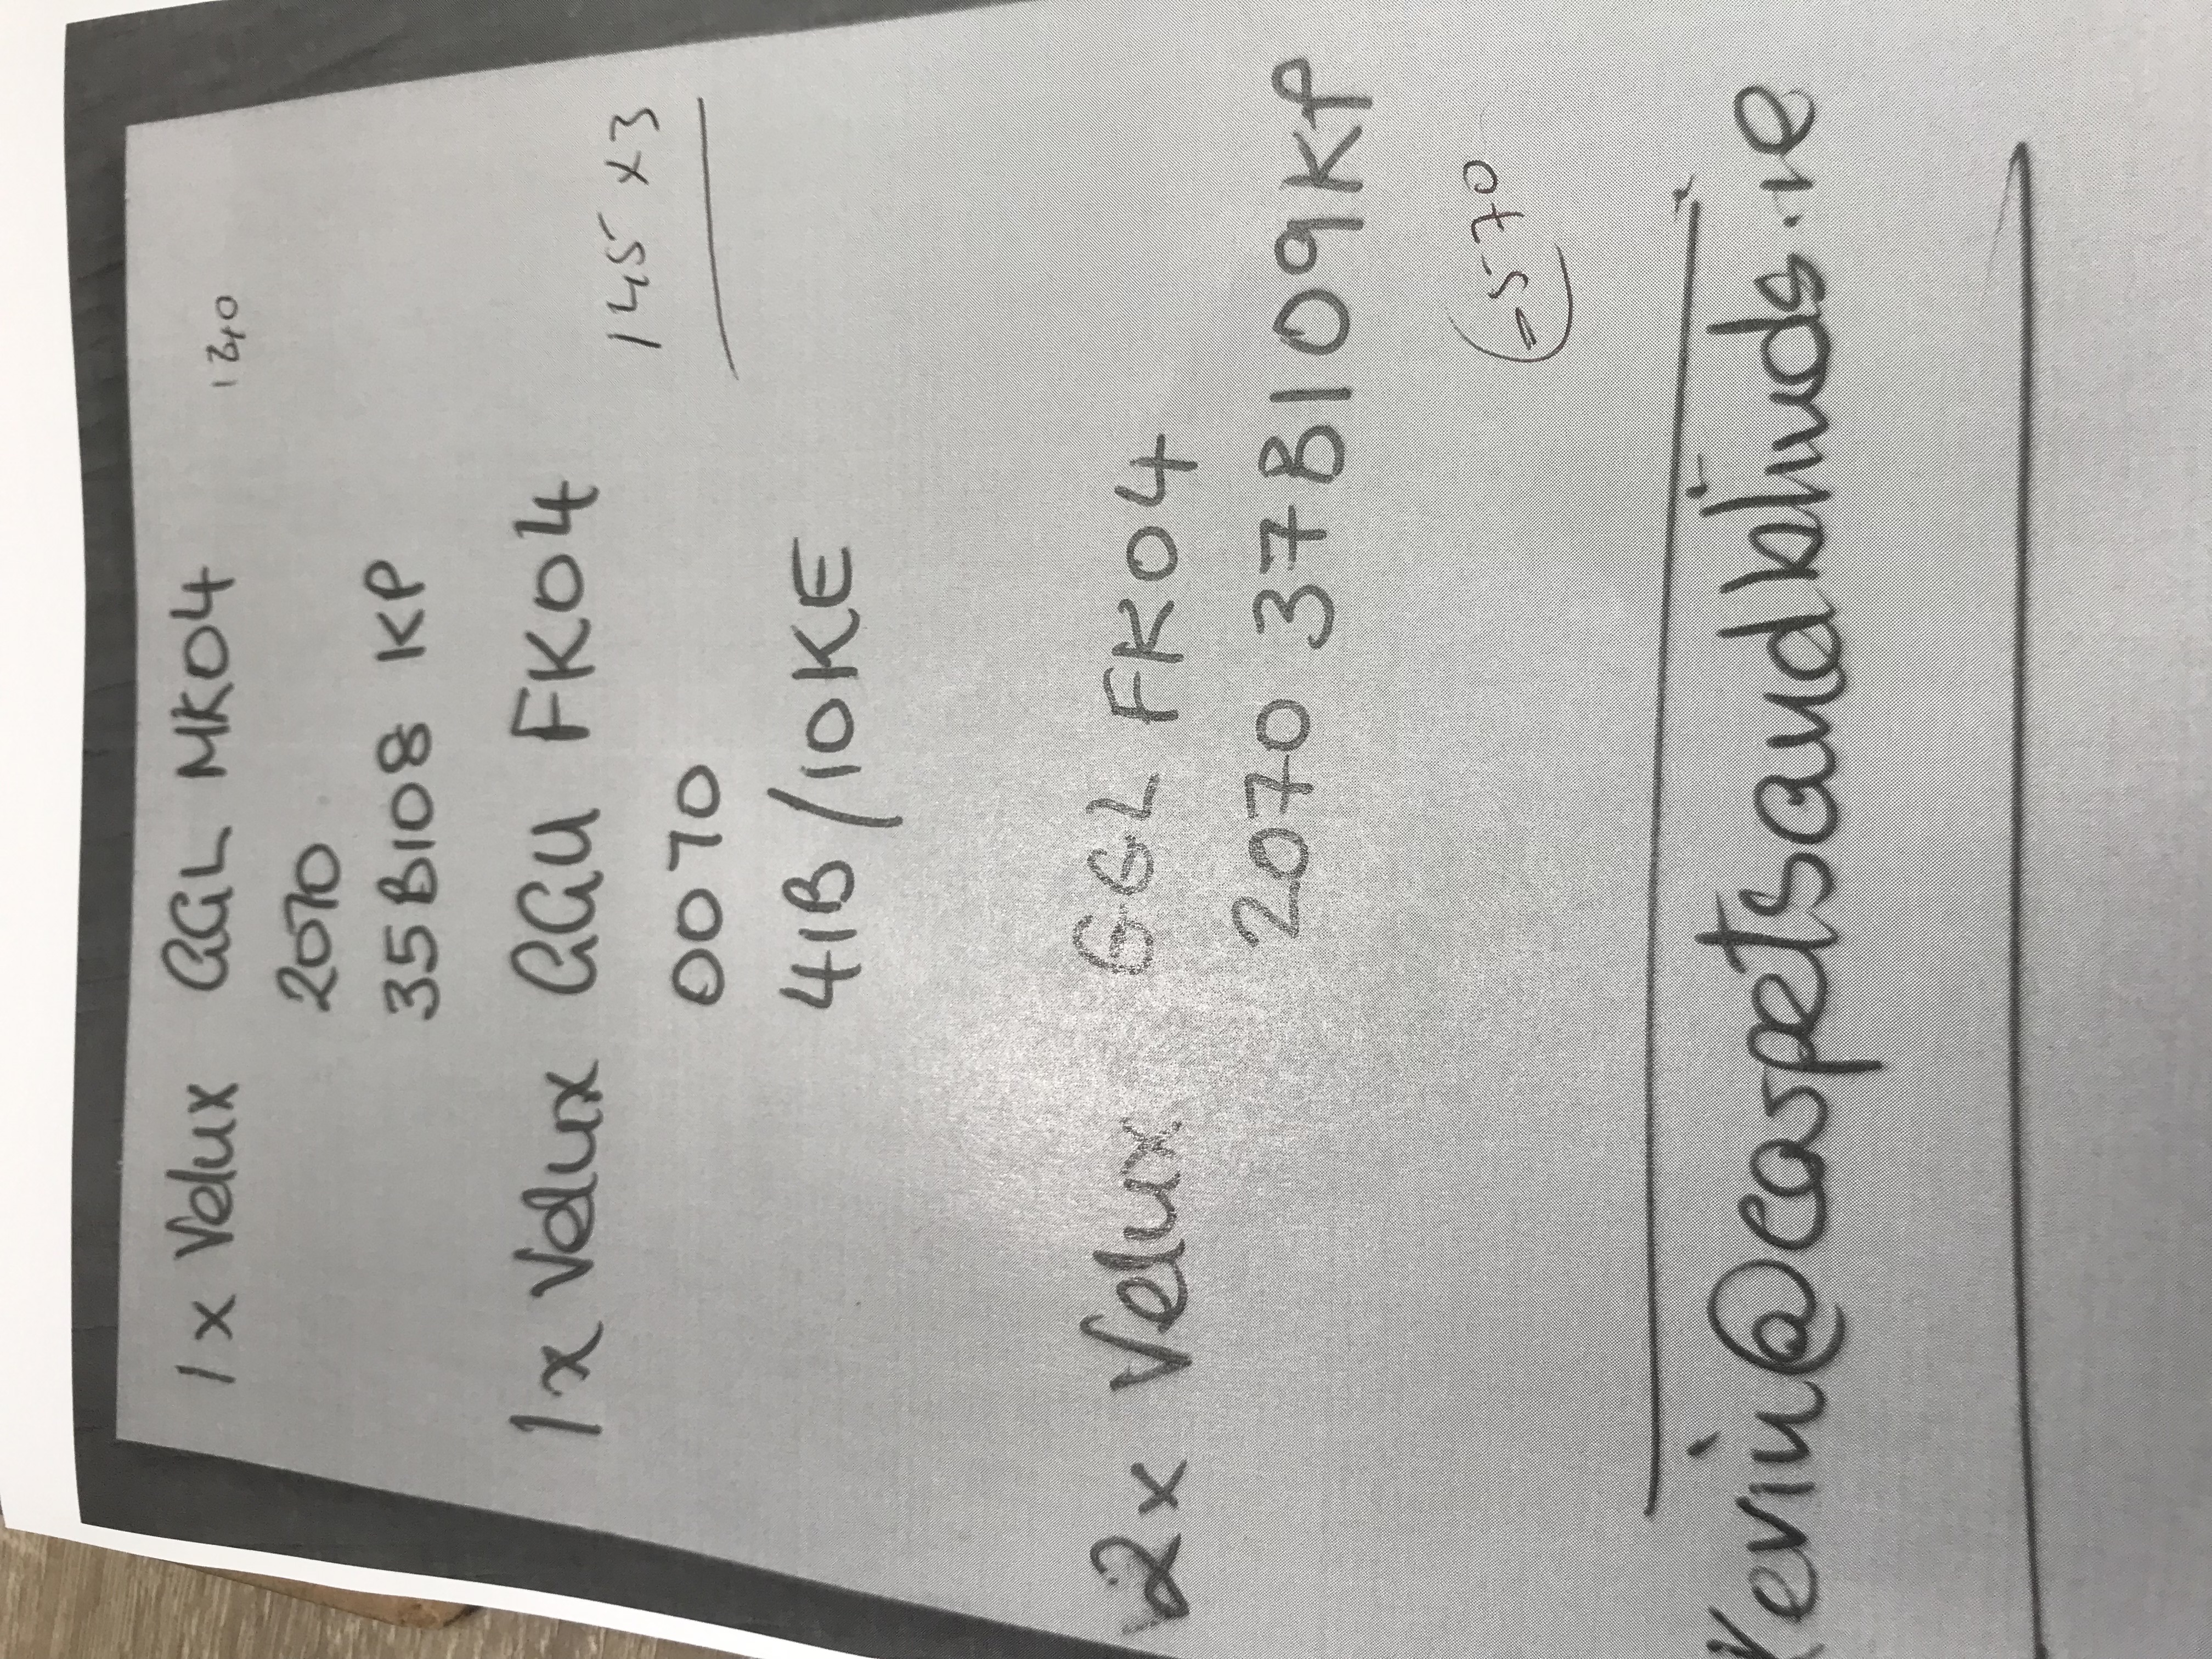 1 x Velux GGL MK04
130
2070
35B108 KP
1x Velux GGU FK04
145 x 3
0070
41B/10KE
2x Velux GGL FK04
2070 37B109KP
= 570
Kevin@carpetsandblinds.ie